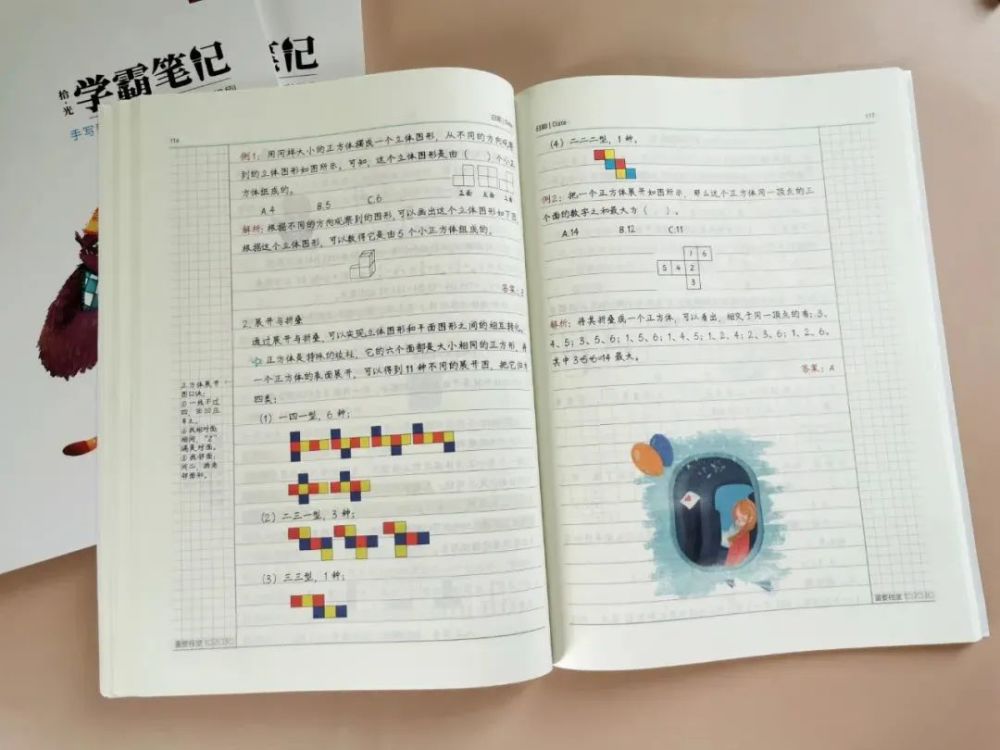 学霸笔记
笔记
拾·光
手写
116
例1：用同样大小的正方体摆成一个立体图形，从不同的方向观察
到的立体图形如图所示。可知，这个立体图形是由（ ）个小正
方体组成的。
A.4 B.5 C.6
解析：根据不同的方向观察到的图形，可以画出这个立体图形如下图，
根据这个立体图形，可以数得它是由5个小正方体组成的。
答案：B
2.展开与折叠
通过展开与折叠，可以实现立体图形和平面图形之间的相互转化。
正方体是特殊的棱柱，它的六个面都是大小相同的正方形，将
一个正方体的表面展开，可以得到11种不同的展开图，把它归为
四类：
(1) 一四一型，6种；
(2) 二三一型，3种；
(3) 三三型，1种；
正方体展开
图口诀：
①一线不过
四，田凹应
弃之。
②找相对面：
相间，“Z”
端是对面。
③找邻面：
间二、拐角
邻面知。
日期 | Date
117
(4) 二二二型，1种。
例2：把一个正方体展开如图所示，那么这个正方体同一顶点的三
个面的数字之和最大为（ ）。
A.14 B.12 C.11
1 6
5 4 2
3
解析：将其折叠成一个正方体，可以看出，相交于同一顶点的有：3、
4、5；3、5、6；1、5、6；1、4、5；1、2、4；2、3、6；1、2、6。
其中3+5+6=14最大。
答案：A